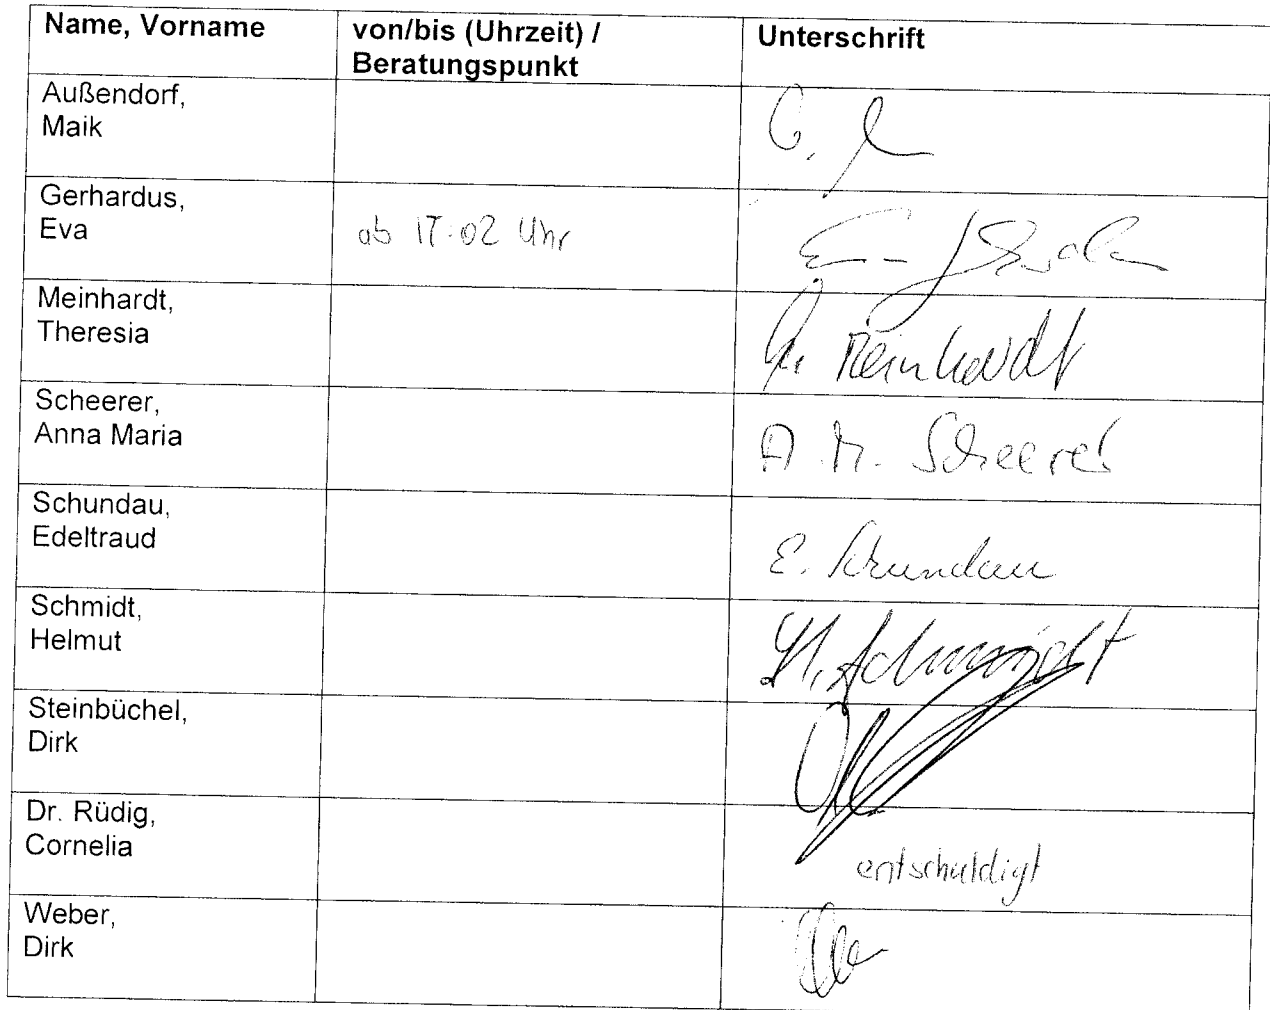 Name, Vorname
von/bis (Uhrzeit) /
Beratungspunkt
Unterschrift
Außendorf,
Maik
Gerhardus,
Eva
ab 17:02 Uhr
Meinhardt,
Theresia
Meinhardt
Scheerer,
Anna Maria
A. M. Scheerer
Schundau,
Edeltraud
E. Schundau
Schmidt,
Helmut
H. Schmidt
Steinbüchel,
Dirk
Dr. Rüdig,
Cornelia
entschuldigt
Weber,
Dirk